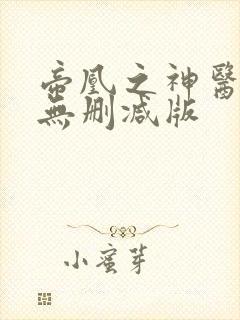 帝凰之神醫
無刪減版
小蜜芽